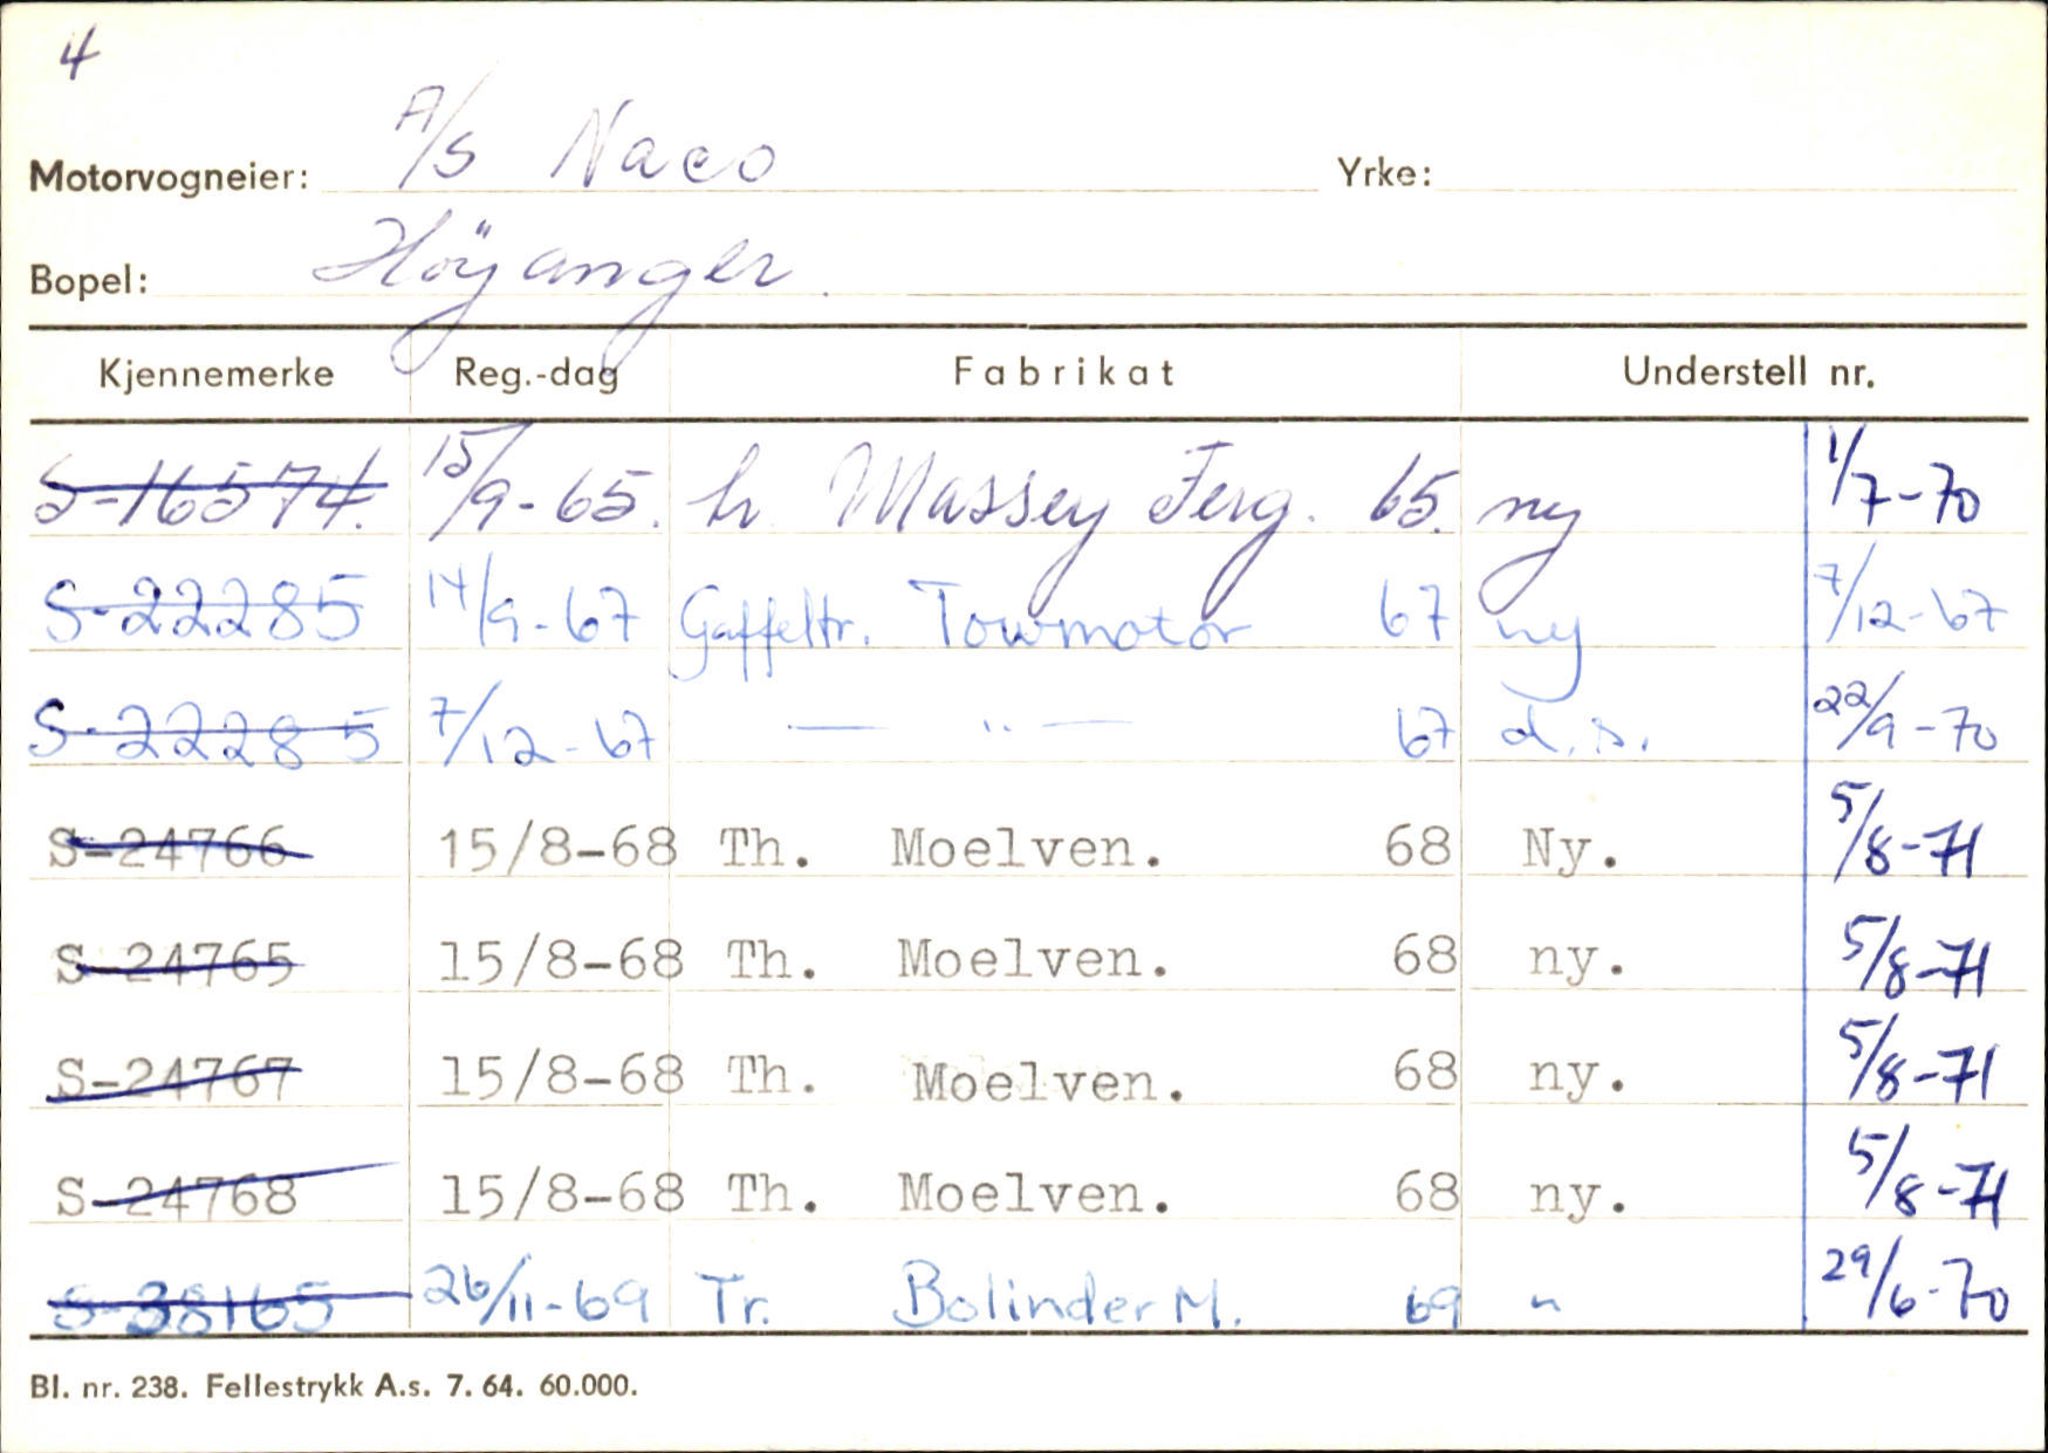 4
Motorvogneier: A/S Naco Yrke:
Bopel: Höyanger.
Kjennemerke Reg.-dag Fabrikat Understell nr.
S-16574. 15/9-65. h. Massey Ferg. 65. ny 1/7-70
S-22285 14/9-67 Gaffeltr. Towmotor 67 ny 7/12-67
S-22285 7/12-67 — " — 67 d.s. 22/9-70
S-24766 15/8-68 Th. Moelven. 68 Ny. 5/8-71
S-24765 15/8-68 Th. Moelven. 68 ny. 5/8-71
S-24767 15/8-68 Th. Moelven. 68 ny. 5/8-71
S-24768 15/8-68 Th. Moelven. 68 ny. 5/8-71
S-38165 26/11-69 Tr. Bolinder M. 69 " 29/6-70
Bl. nr. 238. Fellestrykk A.s. 7. 64. 60.000.